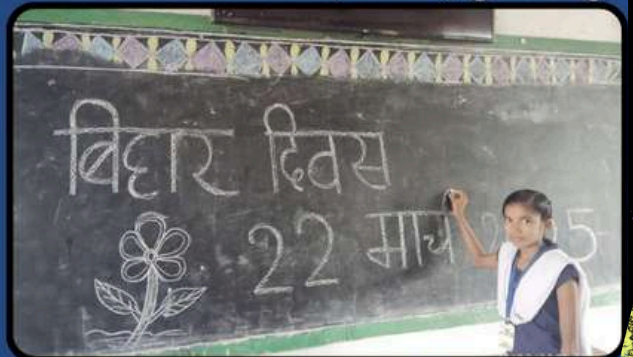 बिहार दिवस
22 मार्च